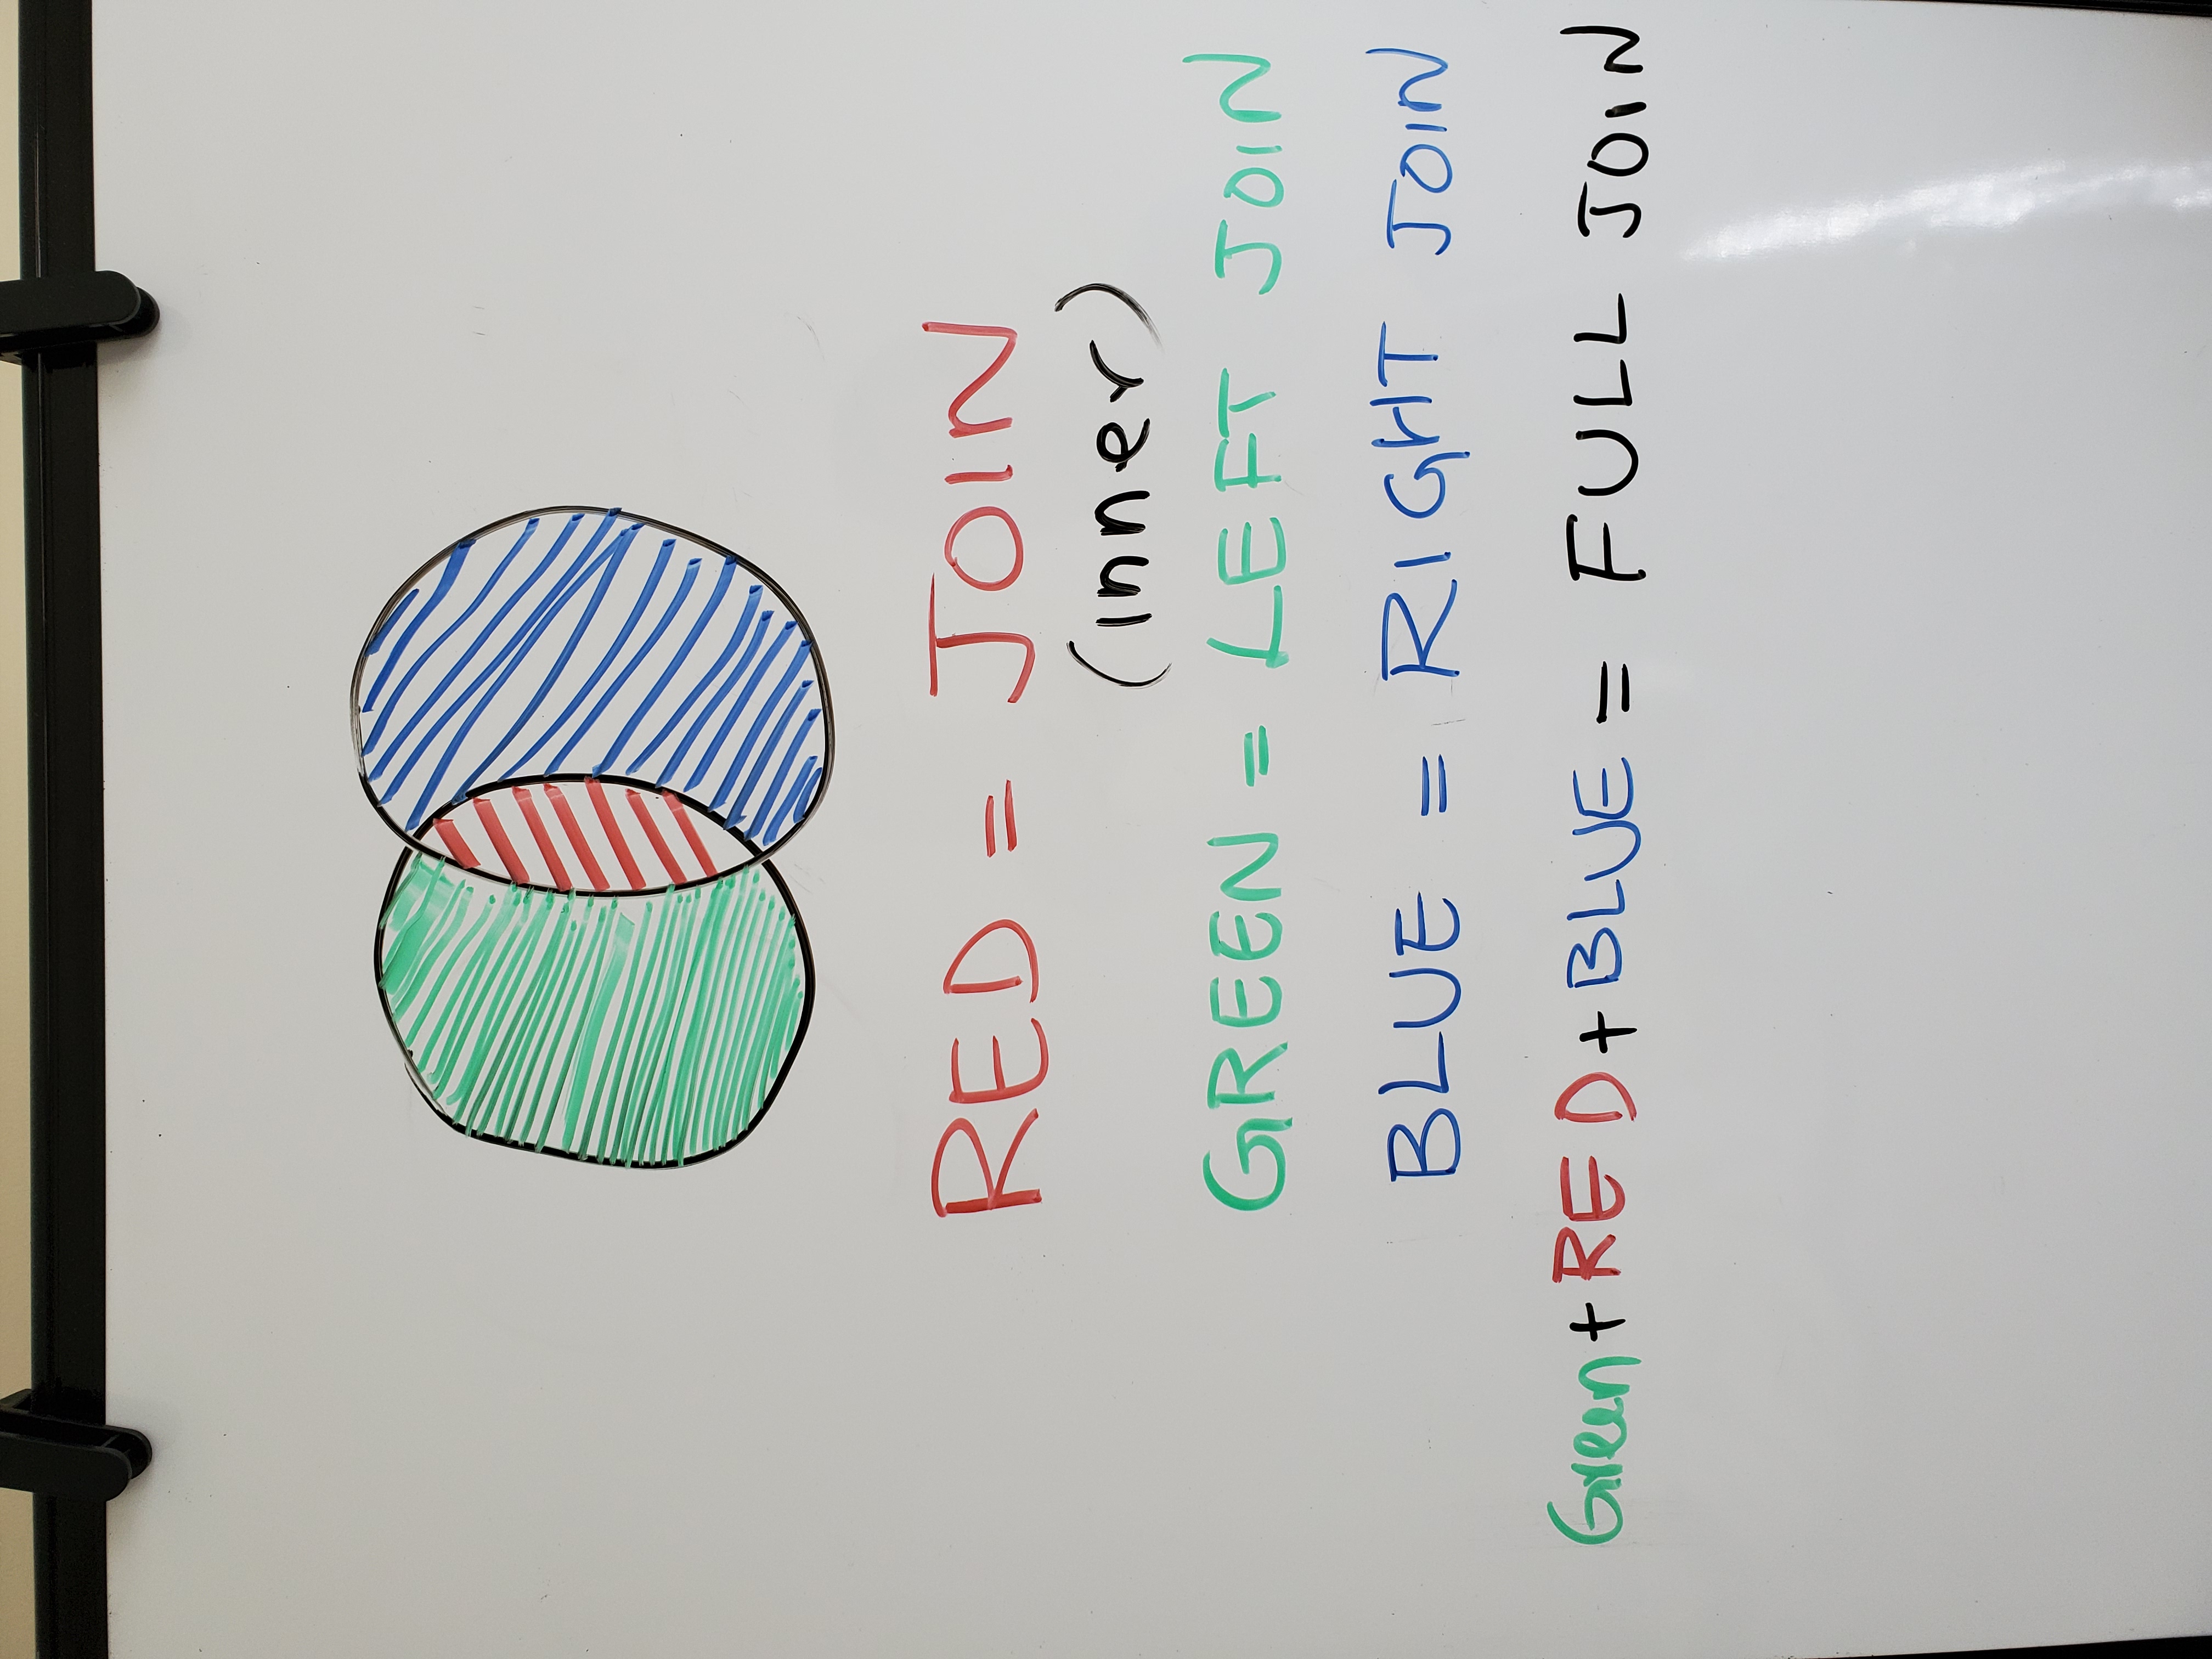 RED = JOIN
(inner)
GREEN = LEFT JOIN
BLUE = RIGHT JOIN
Green + RED + BLUE = FULL JOIN